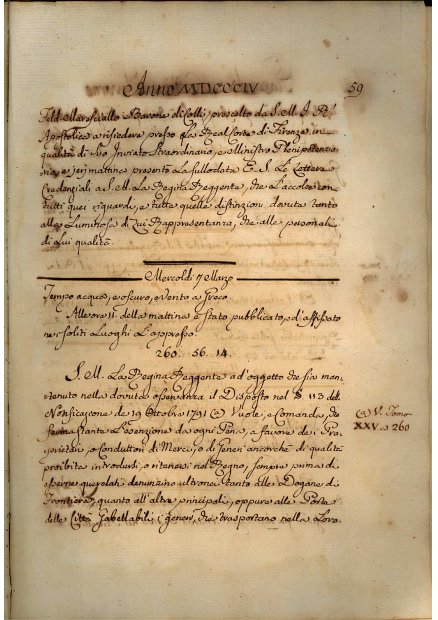 Anno MDCCCIV
59
Feld Maresciallo Barone di Colli, prescelto da S. M. I. R.
Apostolica a risiedere presso la Real Corte di Firenze in
qualità di Suo Inviato Straordinario, e Ministro Plenipotenzia
rio, e jeri mattina presentò la sullodata E. S. le Lettere
Credenziali a S. M. la Regina Reggente, che l'accolse con
tutti quei riguardi, e tutte quelle distinzioni dovute tanto
alla Luminosa di Cui Rappresentanza, che alle personali
di Lui qualità.
Mercoldì 7 Marzo
Tempo acquoso, e oscuro, e Vento a Greco.
Alle ore 11. della mattina è stato pubblicato, ed affissato
nei soliti Luoghi l'appresso.
260. 56. 14.
S. M. la Regina Reggente ad oggetto che sia man-
tenuto nella dovuta osservanza il Disposto nel § 113 della
Notificazione de' 19 Ottobre 1791 (a) Vuole, e Comanda, che
ferma stante l'esenzione da ogni Pena, a favore dei Pro-
prietari, o Conduttori di Merci, o di Generi ancorchè di qualità
proibita introdursi, o ritenersi nel Regno, sempre prima di
esserne querelati denunzino ultronei tanto alle Dogane di
Frontiera, quanto all'altre principali, oppure alle Porte
delle Città Gabellabili, i generi, che trasportano nella Loro
(a) V. Tomo
XXV. a 260